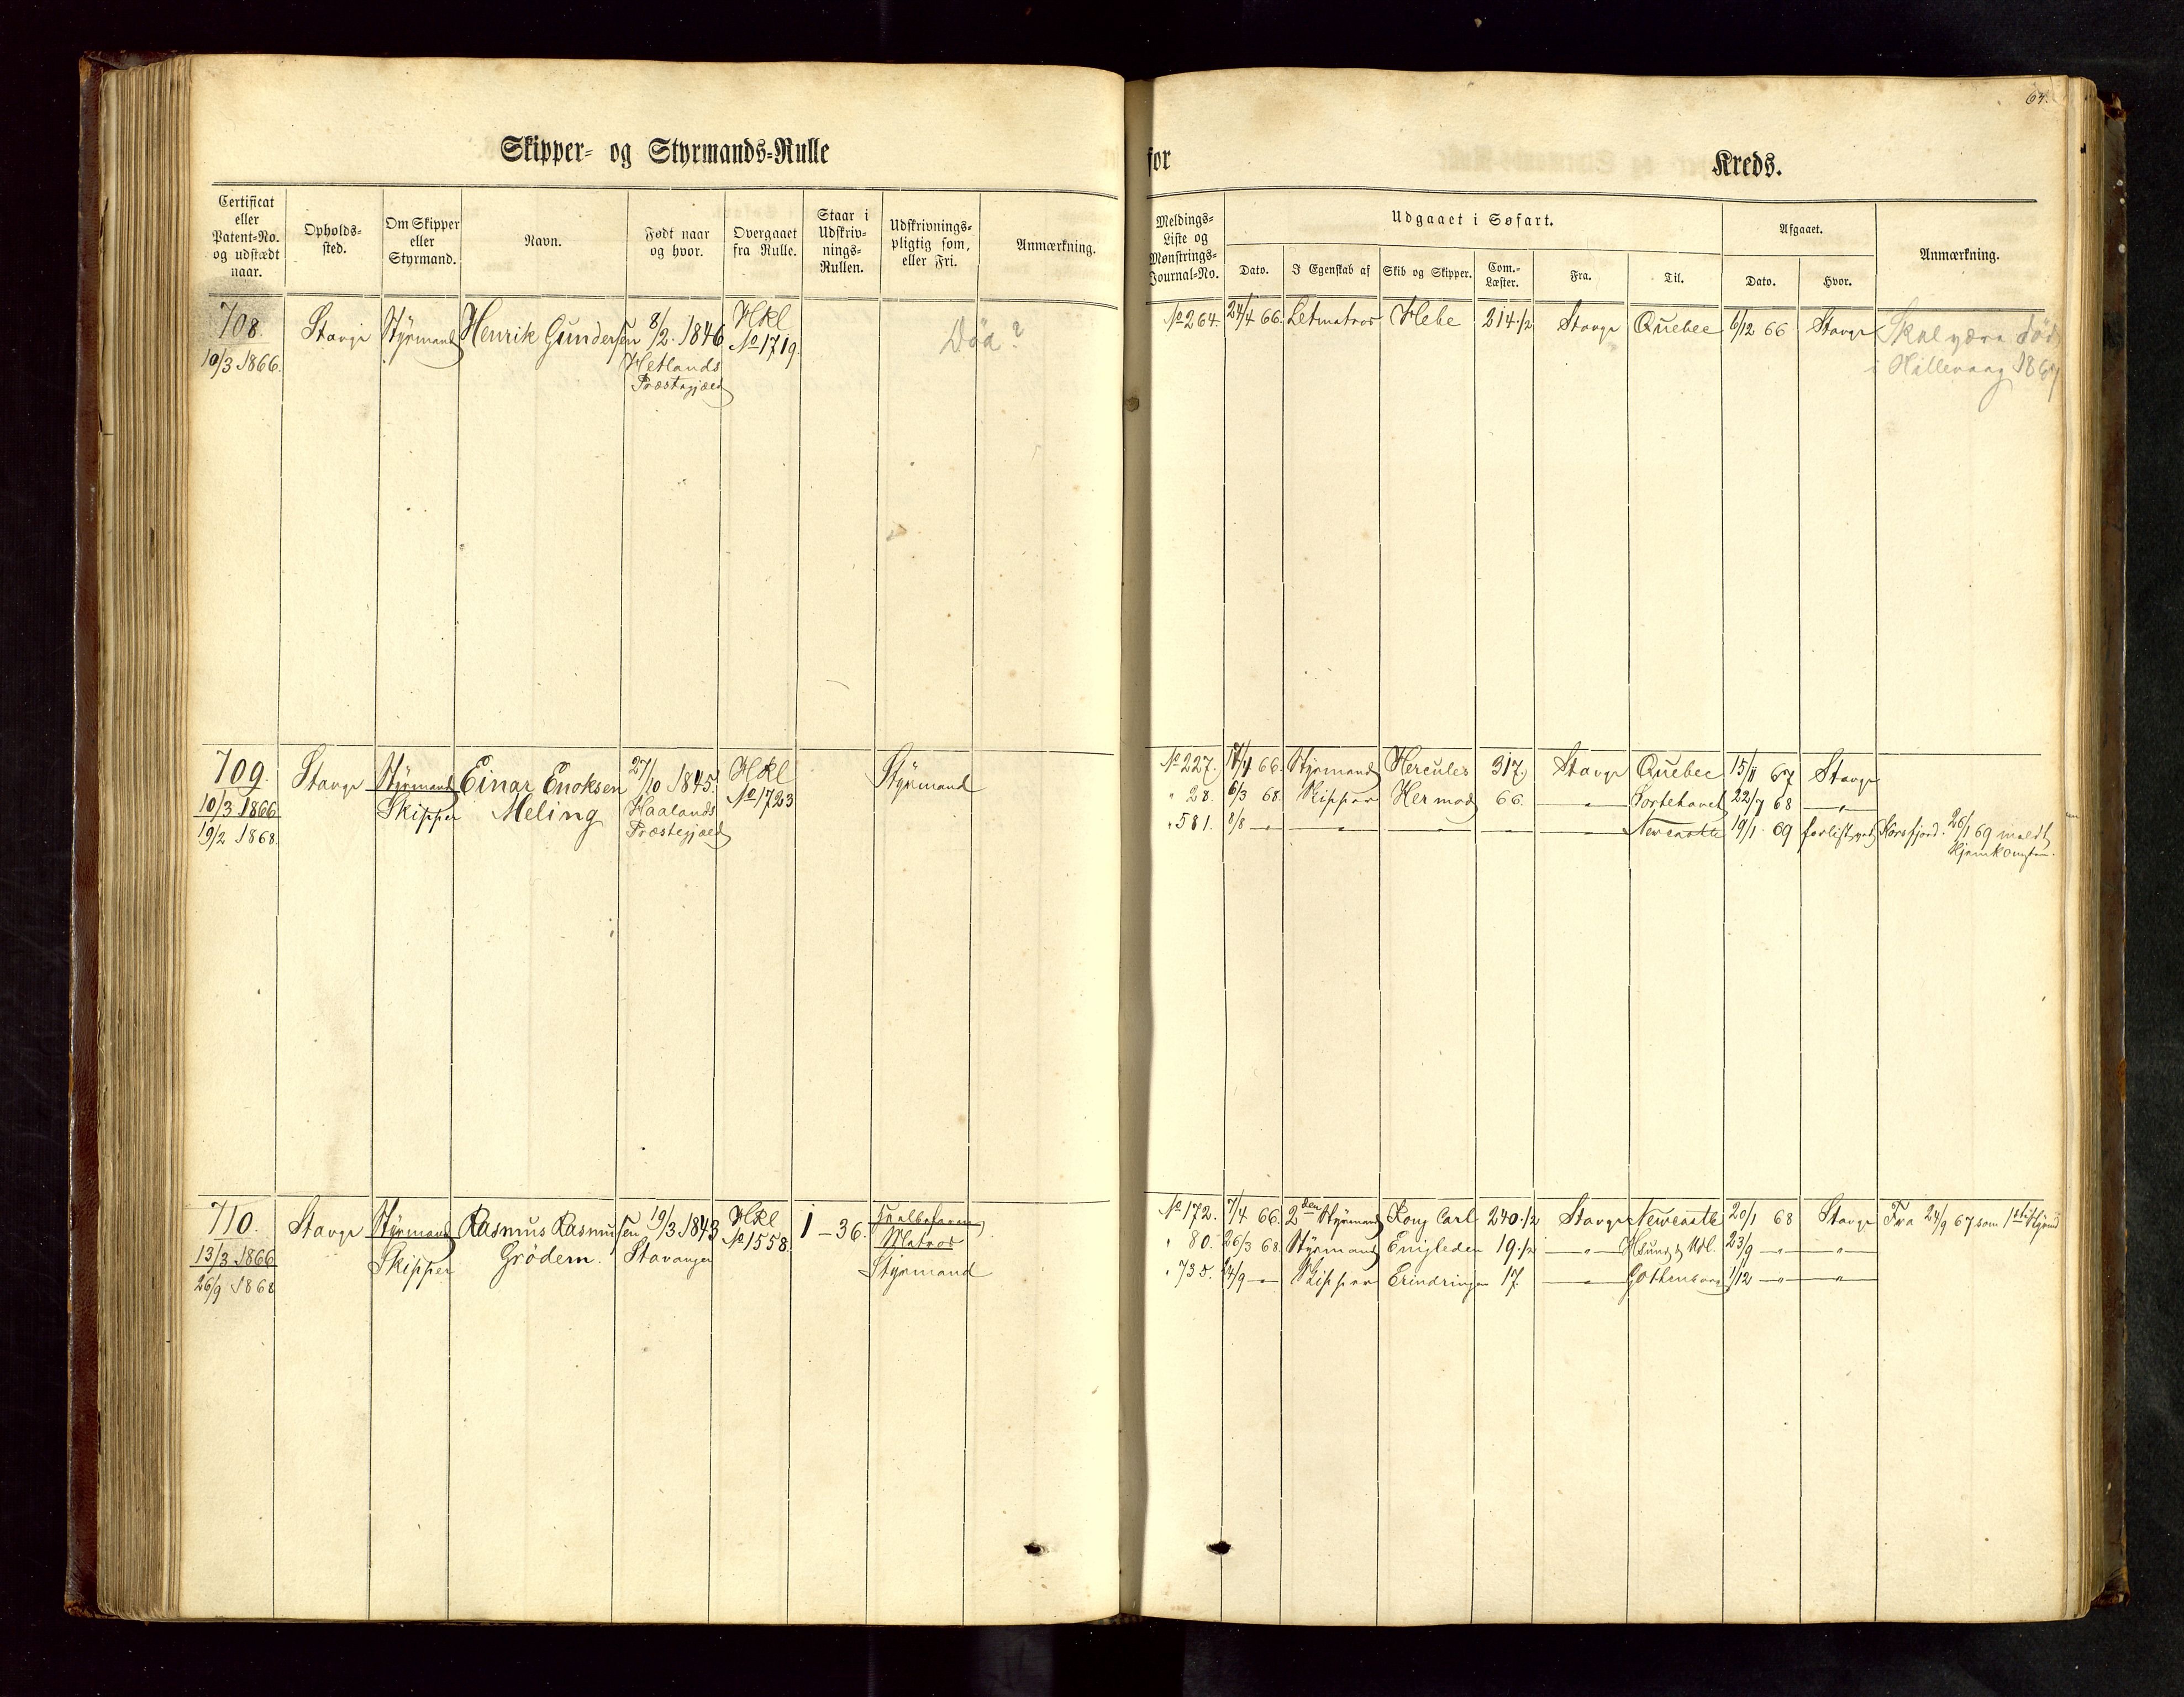 64.
Skipper- og Styrmands-Rulle
for
Kreds.
Certificat eller Patent-No. og udstædt naar.
Opholds-sted.
Om Skipper eller Styrmand.
Navn.
Født naar og hvor.
Overgaaet fra Rulle.
Staar i Udskriv-nings-Rullen.
Udskrivnings-pligtig som, eller Fri.
Anmærkning.
Meldings-Liste og Mønstrings-Journal-No.
Udgaaet i Søfart.
Dato.
I Egenskab af
Skib og Skipper.
Com.-Læster.
Fra.
Til.
Afgaaet.
Dato.
Hvor.
Anmærkning.
708. Stavgr Styrmand Henrik Gundersen 8/2 1846 Hkl Død?
10/3 1866. Hetlands No 1719.
Præstegjæld
No 264. 24/4 66. Letmatros Hebe 214 1/2 Stavgr Quebec 6/12 66 Stavgr Skal være død
i Hillevaag 1867
709. Stavgr Styrmand Einar Enoksen 27/10 1845. Hkl Styrmand
10/3 1866 Skipper Meling Haalands No 1723
19/2 1868. Præstegjæld
No 227. 17/4 66. Styrmand Hercules 317. Stavgr Quebec 15/11 67 Stavgr
" 28. 6/3 68. Skipper Hermod 66. — " — 22/7 68 — " —
" 581. 8/8 — — — — — Newcastle 19/1 69 forlist ved Korsfjord. 26/1 69 meldt
Hjemkomsten.
710. Stavgr Styrmand Rasmus Rasmussen 19/3 1843 Hkl 1 — 36.
13/3 1866 Skipper Grödem. Stavanger No 1558. Matros
26/9 1868 Styrmand
No 172. 7/4 66. 2den Styrmand Kong Carl 240 1/2 Stavgr Newcastle 20/1 68 Stavgr Fra 24/9 67 som 1ste Styrmd
" 80. 26/3 68. Styrmand Enigheden 19 1/2 — " — 23/9 — " — — " —
" 735. 24/9 — Skipper Erindringen 17. — " — Gottenborg 1/12 — " — — " —